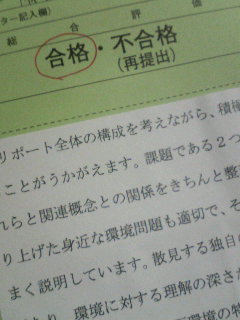 ター記入欄)
総合評価
合格・不合格
(再提出)
リポート全体の構成を考えながら、積極
ことがうかがえます。課題である2つ
れらと関連概念との関係をきちんと整
り上げた身近な環境問題も適切で、そ
まく説明しています。散見する独自の
環境に対する理解の深さが
環境の特